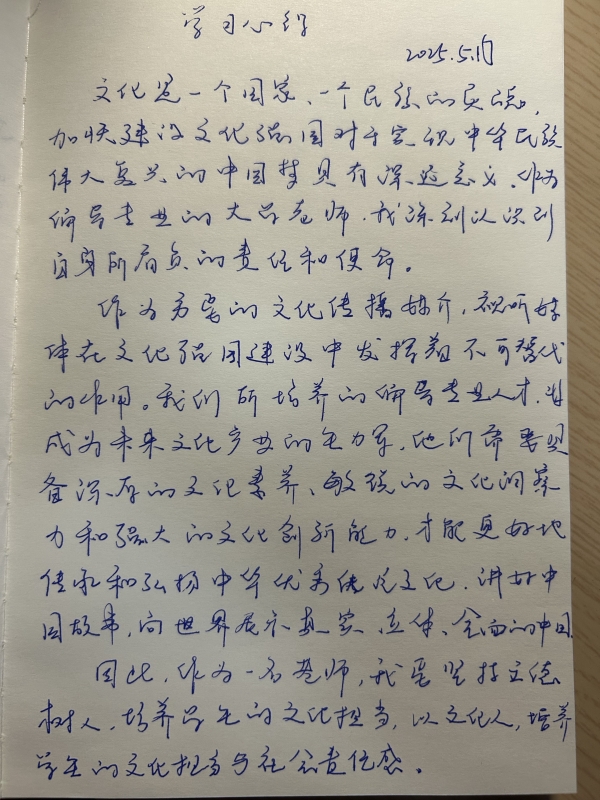 学习心得
2025.5.17
文化是一个国家、一个民族的灵魂,
加快建设文化强国对于实现中华民族
伟大复兴的中国梦具有深远意义。作为
编导专业的大学老师,我深刻认识到
自身所肩负的责任和使命。
作为重要的文化传播媒介,视听媒
体在文化强国建设中发挥着不可替代
的作用。我们所培养的编导专业人才,将
成为未来文化产业的生力军,他们需要具
备深厚的文化素养、敏锐的文化洞察
力和强大的文化创新能力,才能更好地
传承和弘扬中华优秀传统文化,讲好中
国故事,向世界展示真实、立体、全面的中国
因此,作为一名老师,我要坚持立德
树人,培养学生的文化担当,以文化人,培养
学生的文化担当与社会责任感。